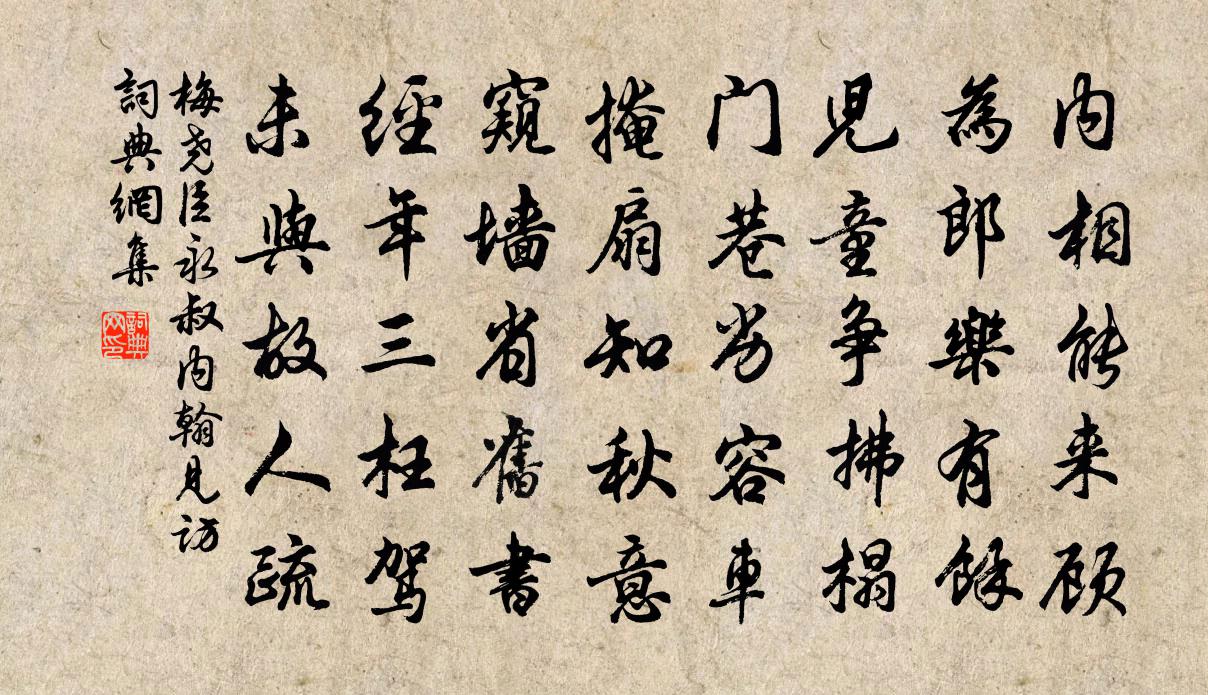 内相能来顾
為郎樂有餘
兒童争拂榻
门巷劣容車
掩扇知秋意
窺墙省舊書
經年三枉驾
未與故人疏
梅尧臣永叔内翰見访
詞典網集
詞典
网印